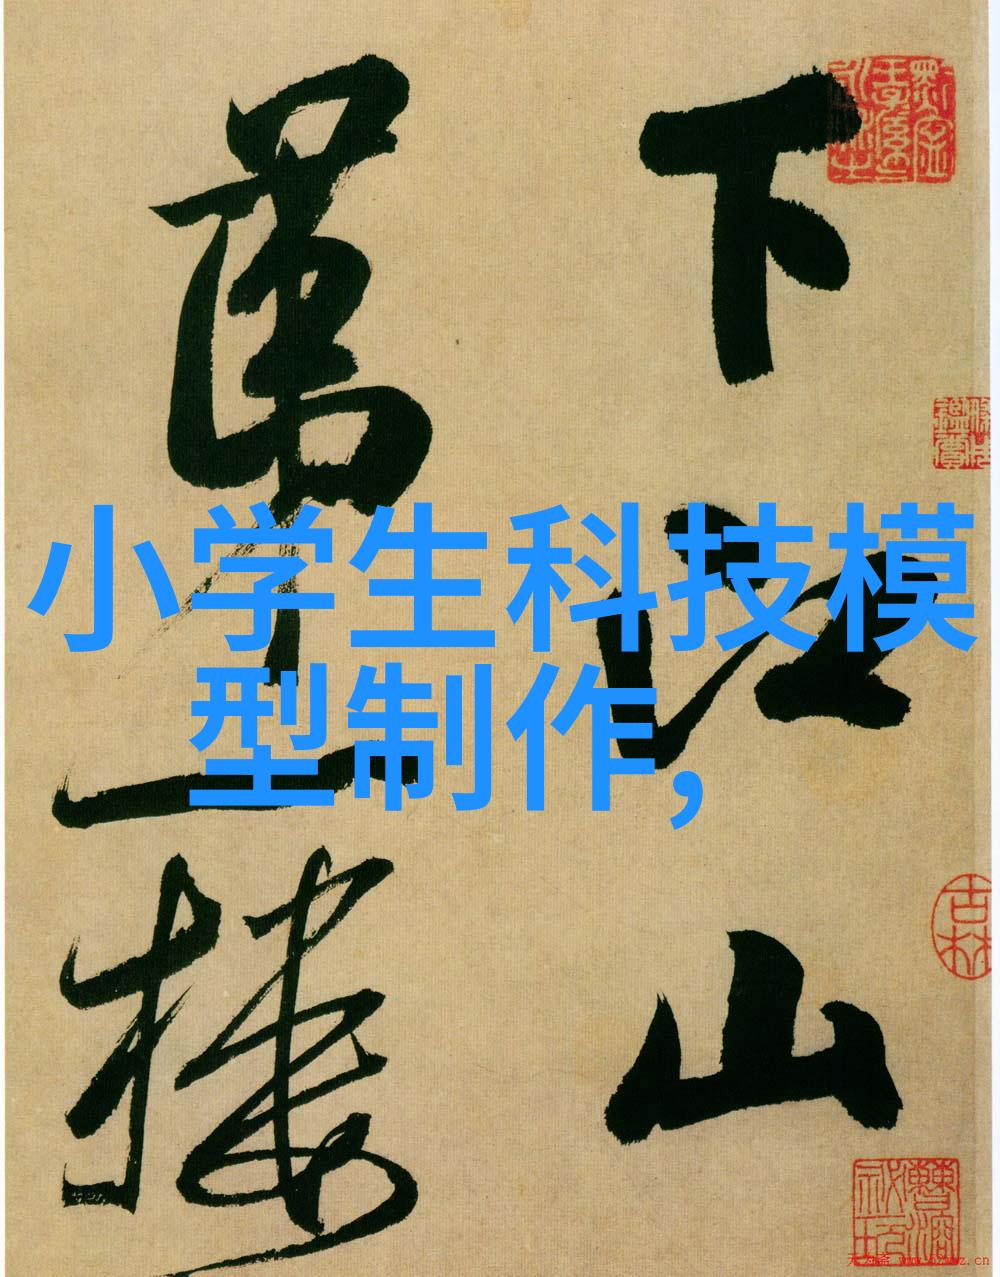 下江山
第一樓
小学生科技模
型制作,